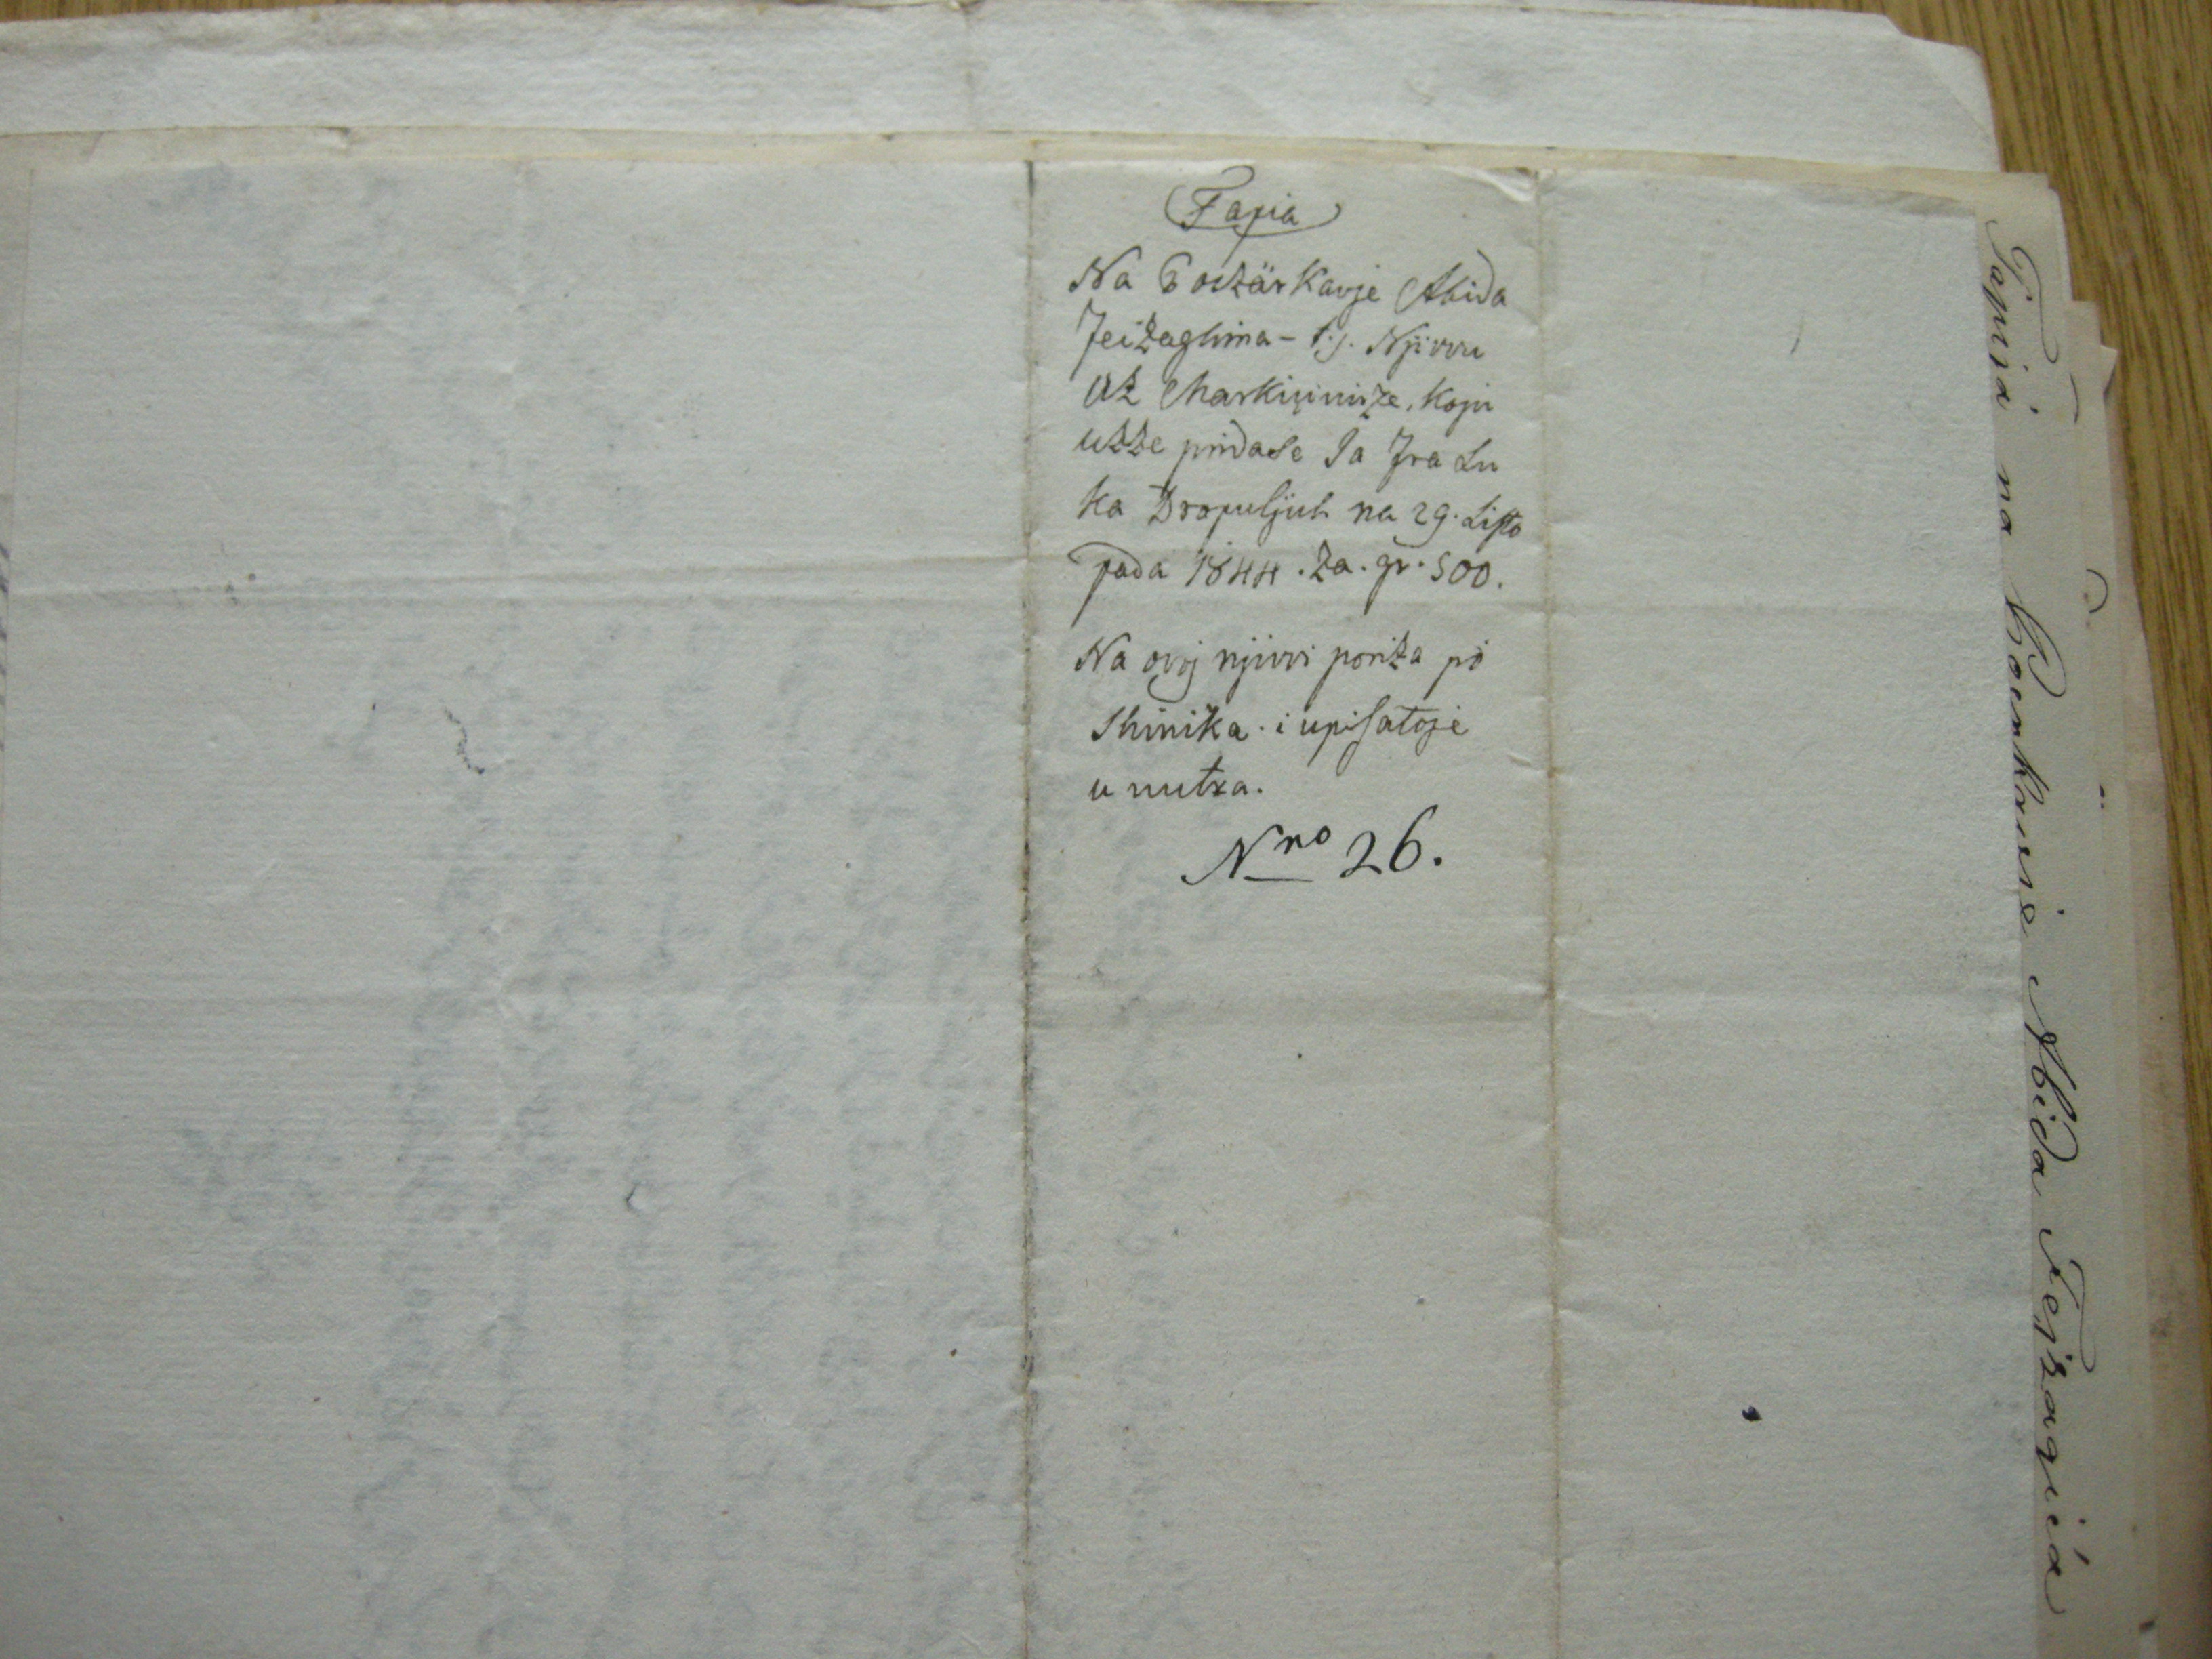 Tapia
Na Pocxärkavje Abida
Feizaghina - t.j. Njivvu
uz Markisinize, koju
uzze pridase Ja Fra Lu
ka Dropuljich na 29. Listo
pada 1844. za. gr. 500.
Na ovoj njivvi poriza pò
Shinika. i upisatoje
u nutra.
Nro 26.
Tapia na Bocrkinie Abida Fejzagića